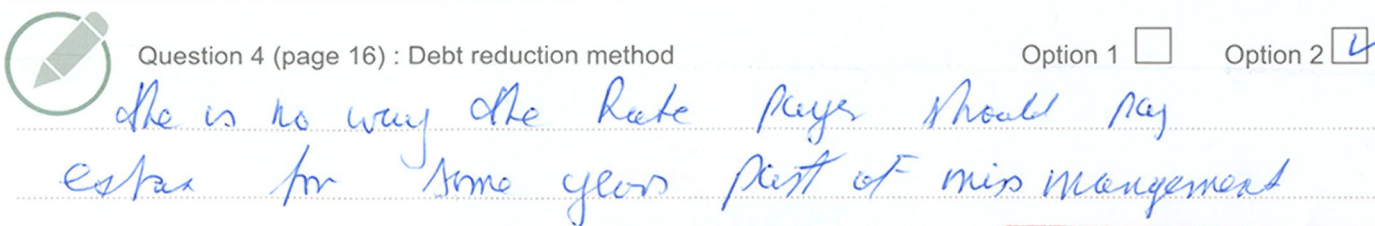 Question 4 (page 16) : Debt reduction method Option 1 Option 2
the is no way the Rate payer should pay
estax for some years past of miss mangement